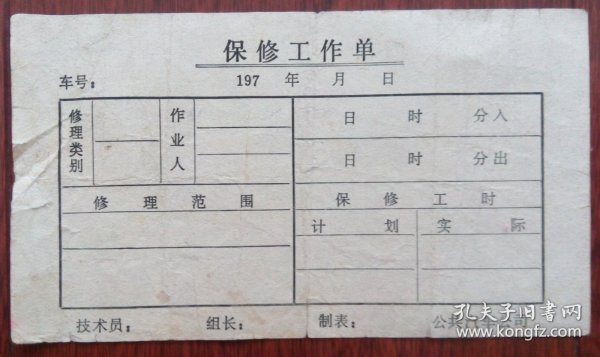 保修工作单
车号： 197 年 月 日
修理类别 作业人 日 时 分入
日 时 分出
修理范围 保修工时
计划 实际
技术员： 组长： 制表： 公共
孔夫子旧书网
www.kongfz.com